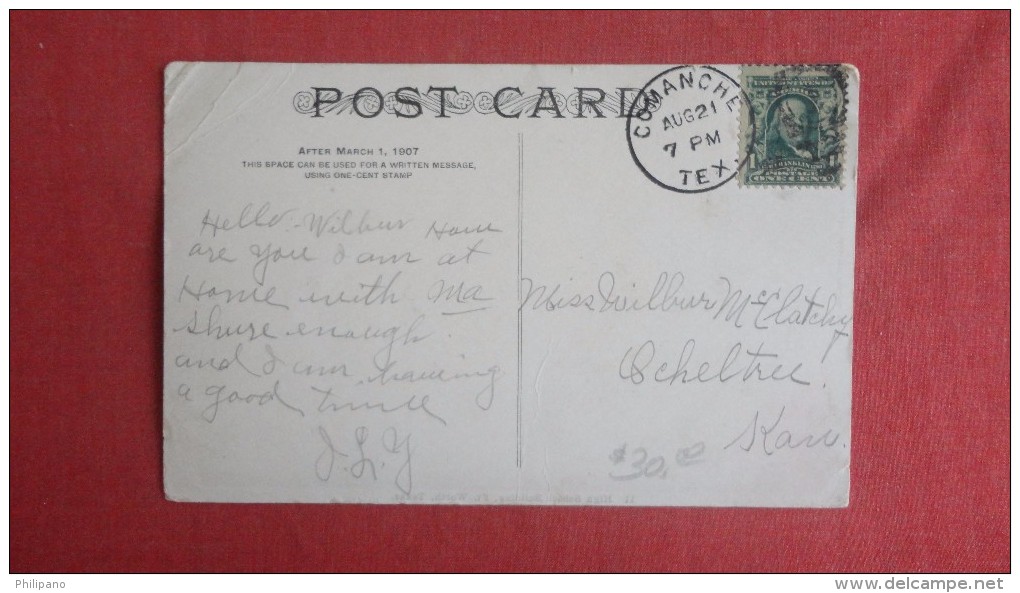 POST CARD
COMANCHE
AUG 21
7 PM
TEX.
UNITED STATES OF AMERICA
FRANKLIN
POSTAGE
1 ONE CENT 1
AFTER MARCH 1, 1907
THIS SPACE CAN BE USED FOR A WRITTEN MESSAGE,
USING ONE-CENT STAMP
Hello. Wilbur How
are you I am at
Home with Ma
Shure enough.
and I am haveing
a good time
J.L.Y
Miss Wilbur McClatchy
Ocheltree.
Kan.
$30.00
Philipano
www.delcampe.net